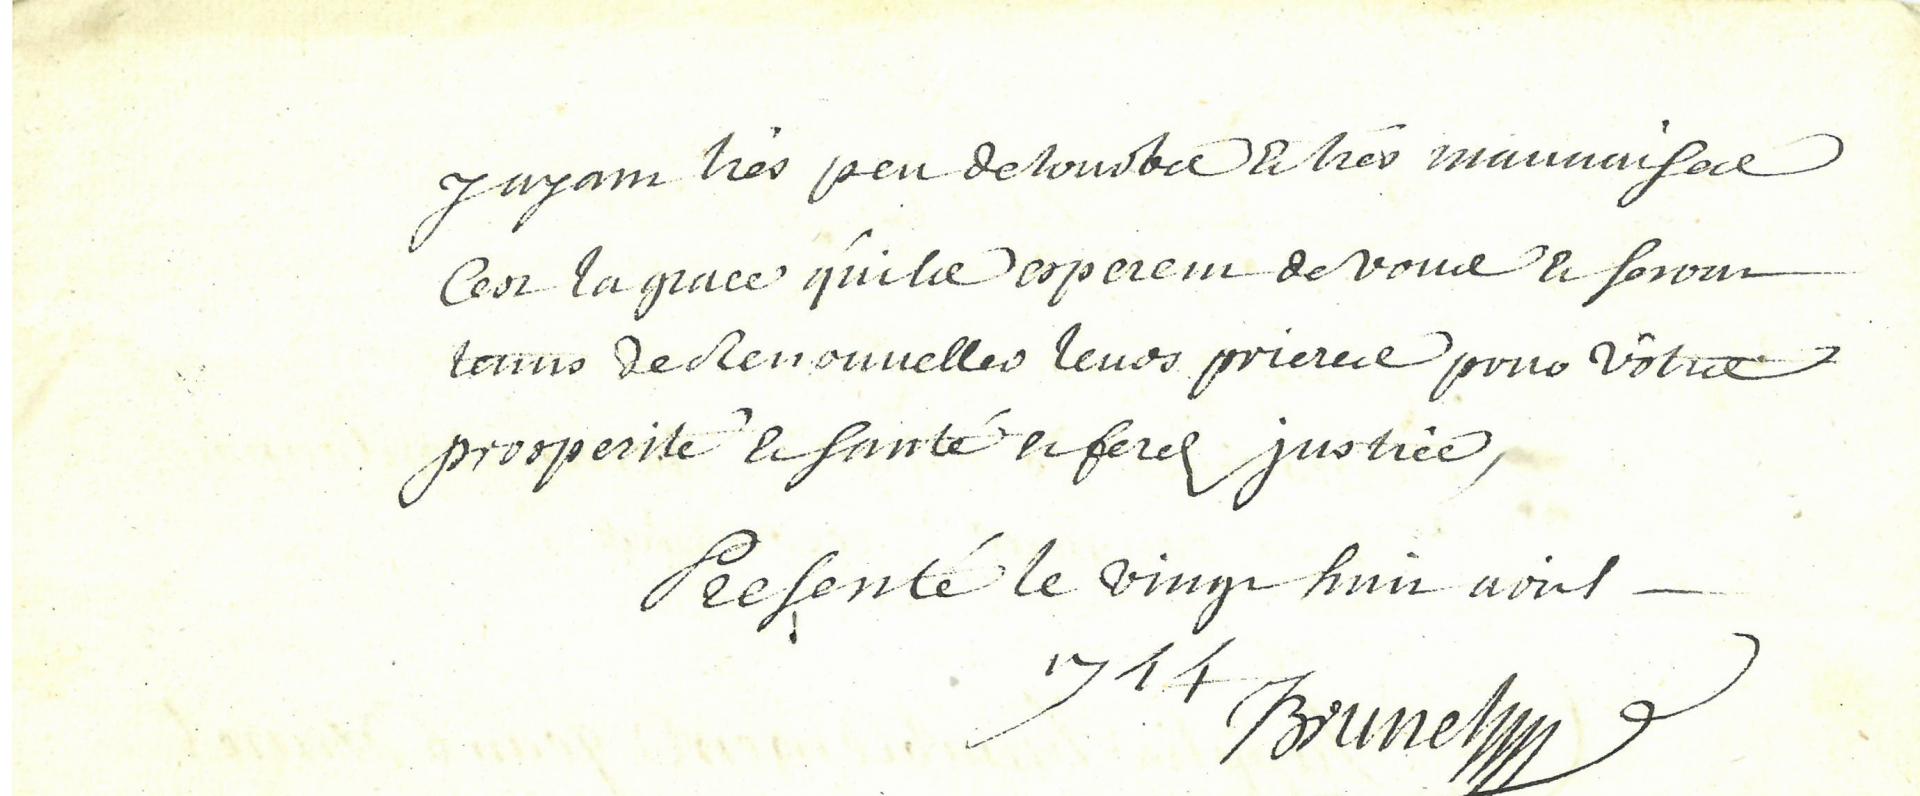 y ayant très peu de tourbes et très mauvaises
C'est la grace qu'ils esperent de vous et seront
tenus de Renouveller leurs prieres pour vôtre
prosperité et santé et ferez justice,
Presenté le vingt huit avril —
1744 Brunet